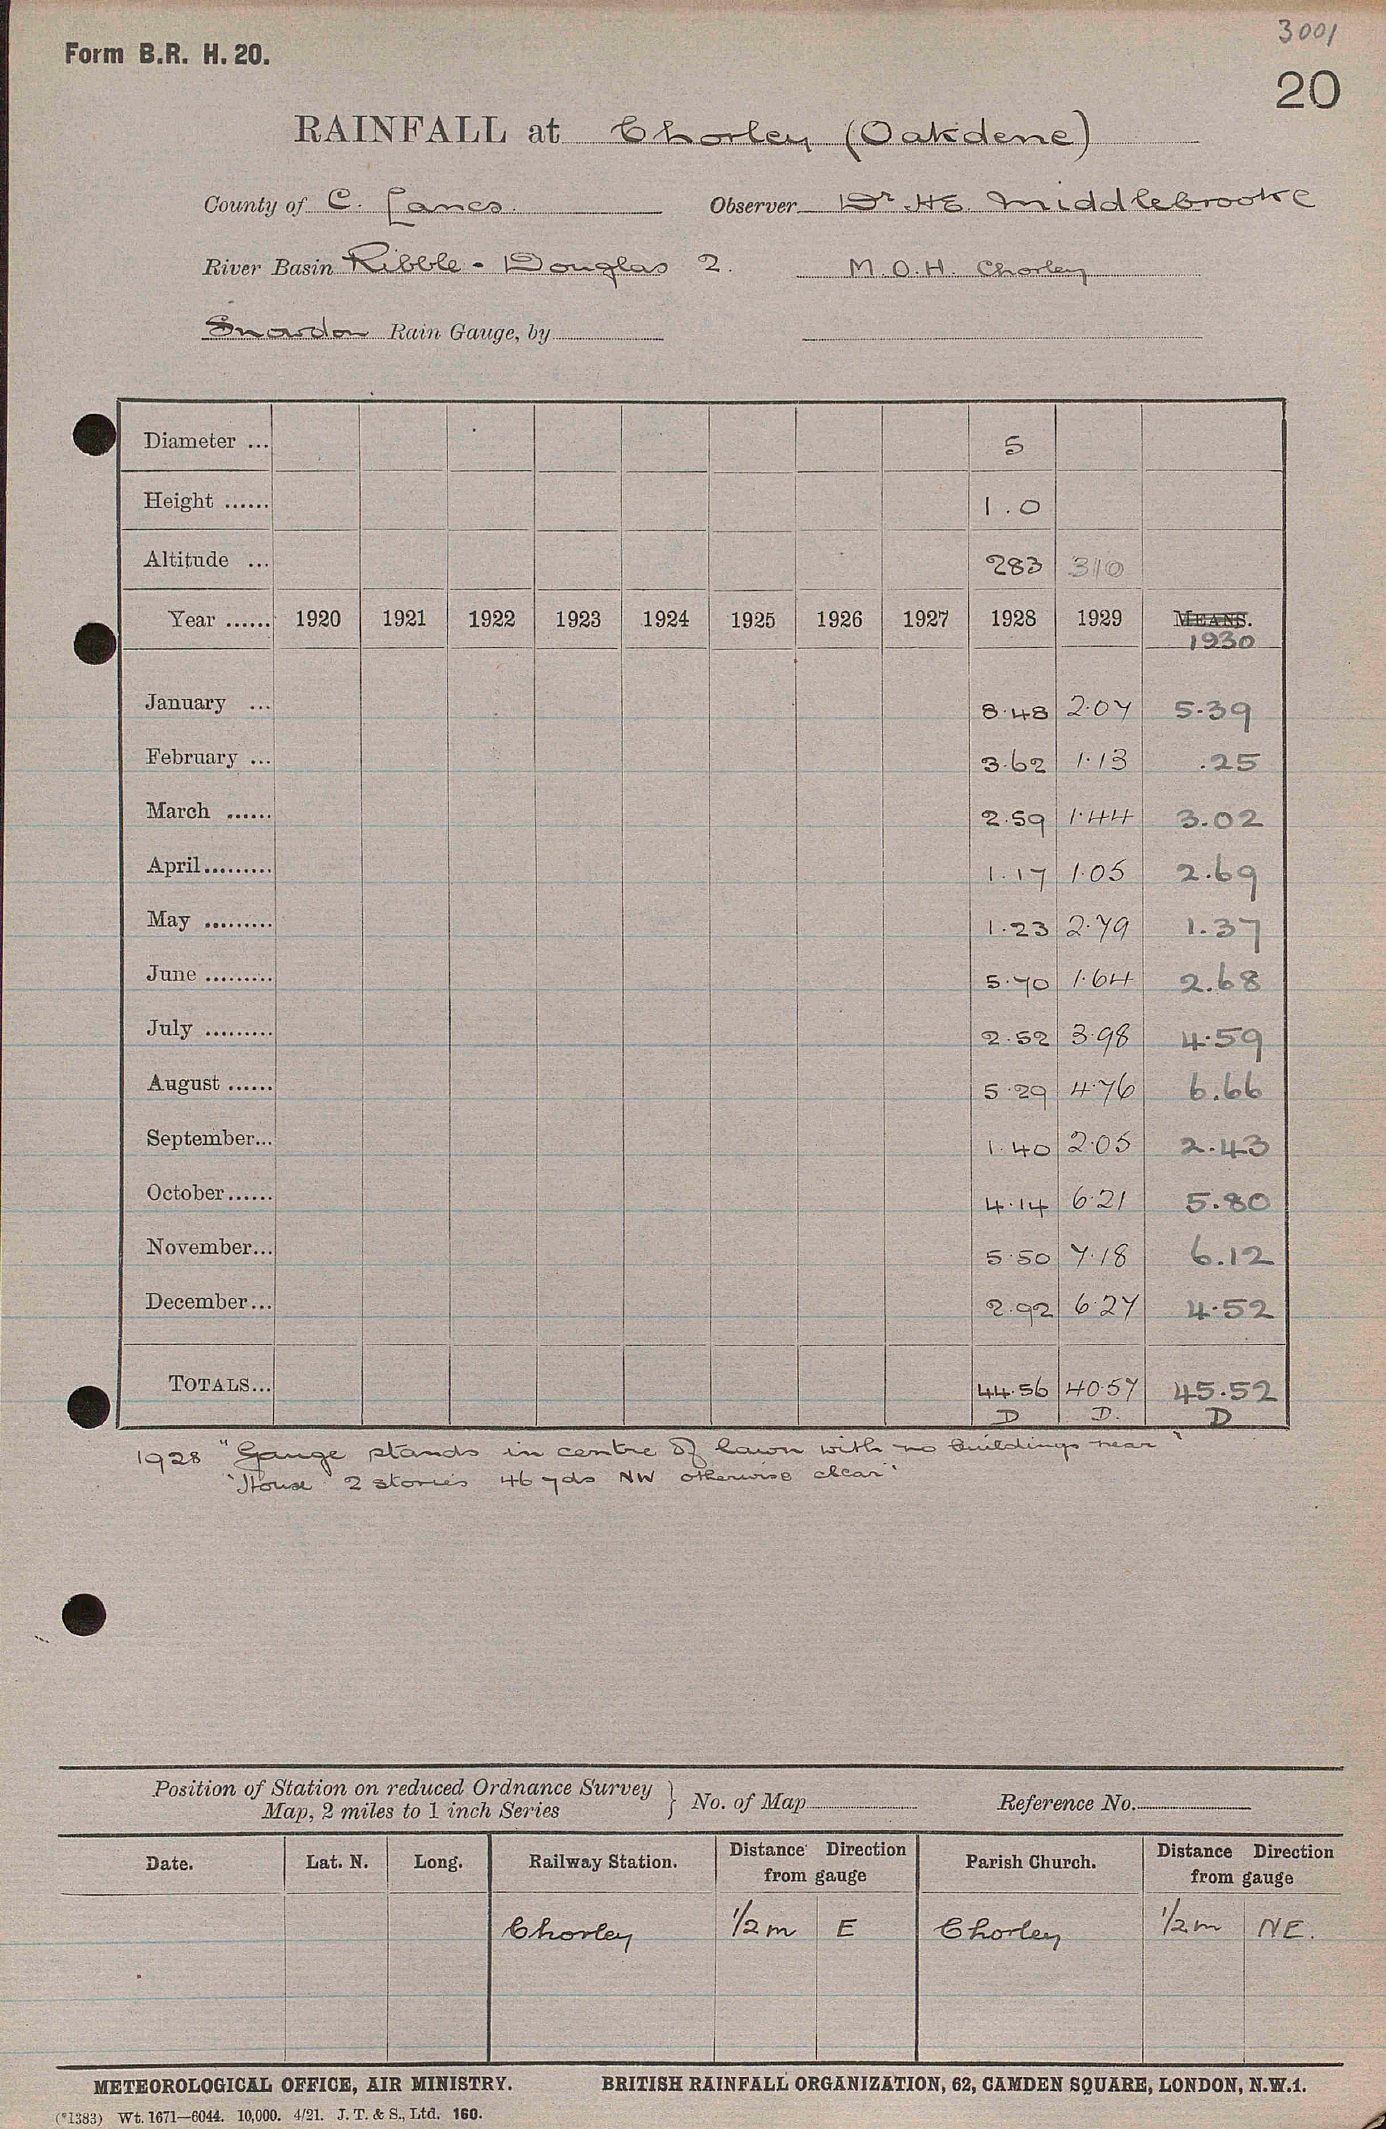 3001
Form B.R. H. 20.
20
RAINFALL at Chorley (Oakdene)
County of C. Lancs. Observer Dr. H E. Middlebrooke
River Basin Ribble - Douglas 2. M.O.H. Chorley
Snowdon Rain Gauge, by
Diameter ... 5
Height ...... 1.0
Altitude ... 283 310
Year ...... 1920 1921 1922 1923 1924 1925 1926 1927 1928 1929 MEANS.
1930
January ... 8.48 2.07 5.39
February ... 3.62 1.13 .25
March ...... 2.59 1.44 3.02
April ......... 1.17 1.05 2.69
May ......... 1.23 2.79 1.37
June ......... 5.70 1.64 2.68
July ......... 2.52 3.98 4.59
August ...... 5.29 4.76 6.66
September... 1.40 2.05 2.43
October...... 4.14 6.21 5.80
November... 5.50 7.18 6.12
December... 2.92 6.27 4.52
TOTALS... 44.56 40.57 45.52
D D. D
1928 "Gauge stands in centre of lawn with no buildings near"
"House 2 stories 46 yds NW otherwise clear"
Position of Station on reduced Ordnance Survey
Map, 2 miles to 1 inch Series } No. of Map Reference No.
Date. Lat. N. Long. Railway Station. Distance Direction from gauge Parish Church. Distance Direction from gauge
Chorley 1/2 m E Chorley 1/2 m NE.
METEOROLOGICAL OFFICE, AIR MINISTRY. BRITISH RAINFALL ORGANIZATION, 62, CAMDEN SQUARE, LONDON, N.W.1.
(*1383) Wt. 1671—6044. 10,000. 4/21. J. T. & S., Ltd. 160.